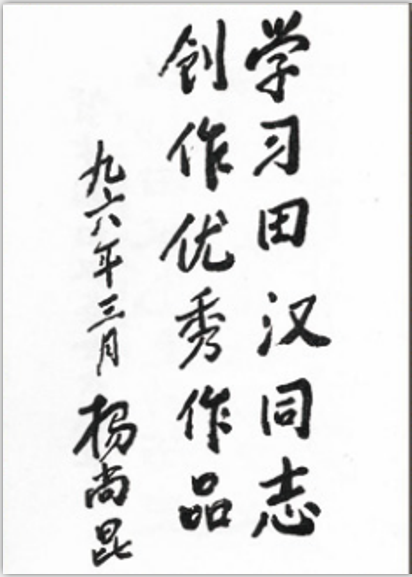 学习田汉同志
创作优秀作品
九六年三月 杨尚昆